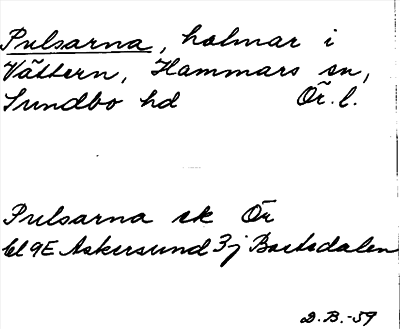 Pulsarna, holmar i
Vättern, Hammars sn,
Sundbo hd Ör. l.
Pulsarna ek Ör
bl 9E Askersund 3j Bastedalen
D.B.-59